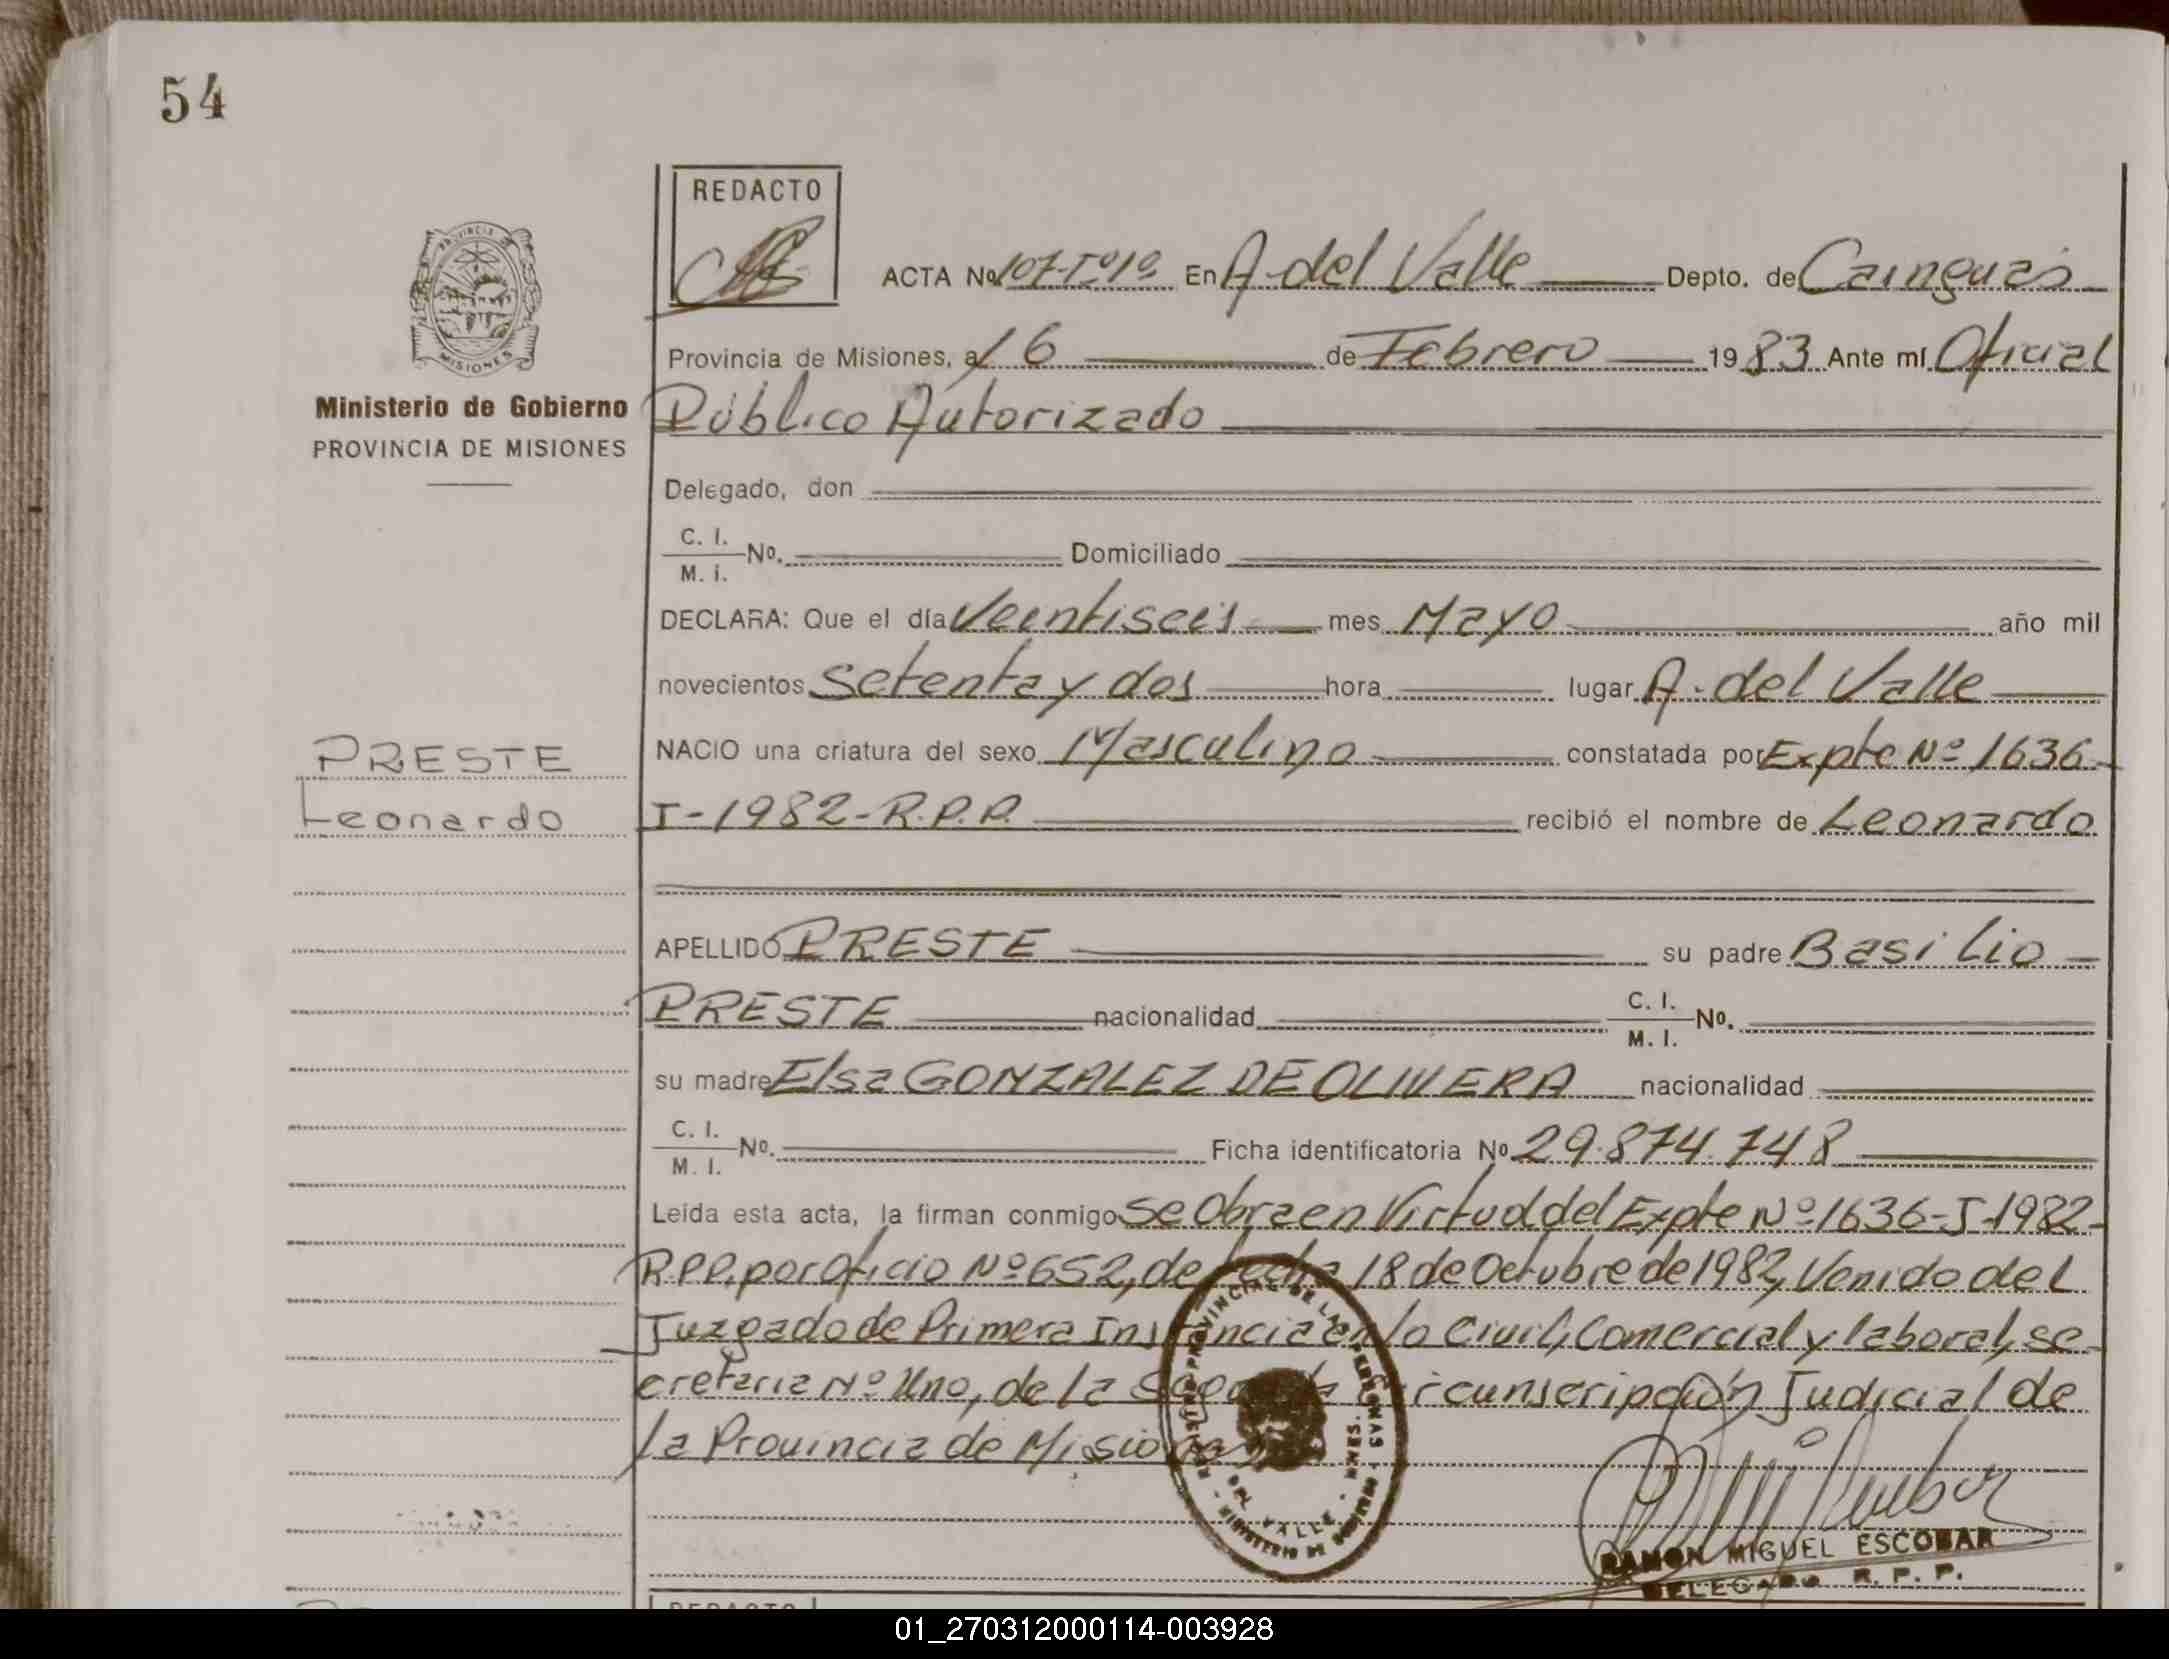 54
REDACTO
PROVINCIA DE
MISIONES
ACTA No 107-Tº1º En A. del Valle Depto. de Cainguas
Provincia de Misiones, a 16 de Febrero 1983 Ante mí Oficial
Ministerio de Gobierno
Público Autorizado
PROVINCIA DE MISIONES
Delegado, don
C. I.
M. I. No. Domiciliado
DECLARA: Que el día Veintiseis mes Mayo año mil
novecientos setenta y dos hora lugar A. del Valle
PRESTE
NACIO una criatura del sexo Masculino constatada por Expte Nº 1636-
Leonardo
I-1982-R.P.P. recibió el nombre de Leonardo
APELLIDO PRESTE su padre Basilio
PRESTE nacionalidad C. I.
M. I. No.
su madre Elsa GONZALEZ DE OLIVERA nacionalidad
C. I.
M. I. No. Ficha identificatoria No 29.874.748
Leída esta acta, la firman conmigo se Obra en Virtud del Expte Nº 1636-I-1982-
R.P.P. por Oficio Nº 652, de fecha 18 de Octubre de 1982, Venido del
Juzgado de Primera Instancia en lo Civil, Comercial y laboral, se-
cretaria Nº Uno, de la Segunda Circunscripción Judicial de
la Provincia de Misiones
REGISTRO PROVINCIAL DE LAS PERSONAS
DEL VALLE - MNES.
MINISTERIO DE GOBIERNO
RAMON MIGUEL ESCOBAR
DELEGADO R. P. P.
REDACTO
01_270312000114-003928